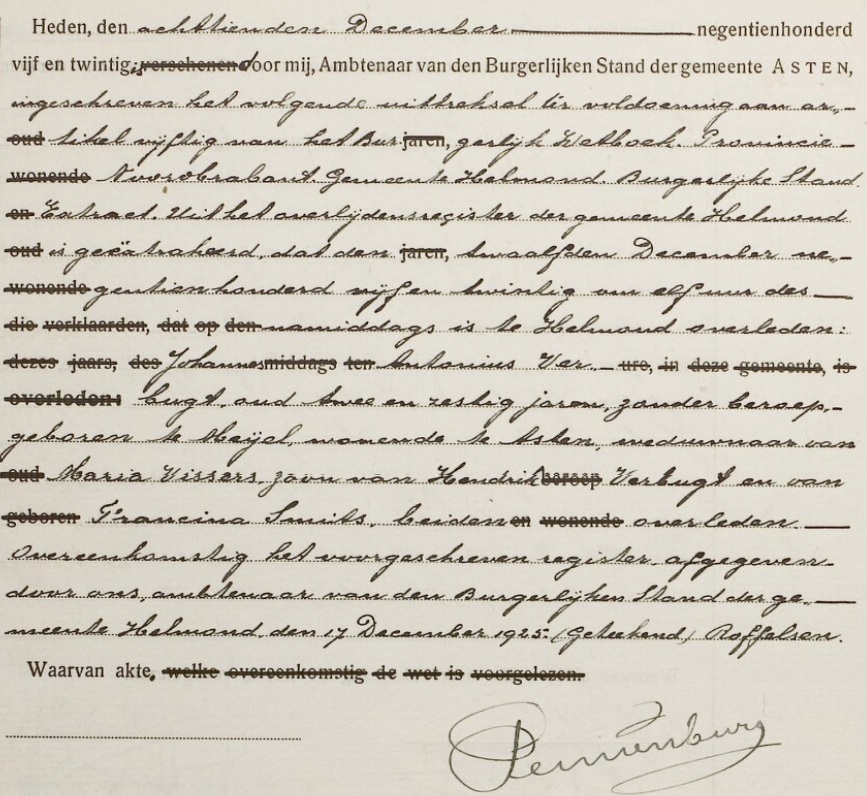 Heden, den achttienden December negentienhonderd
vijf en twintig, verschenen door mij, Ambtenaar van den Burgerlijken Stand der gemeente ASTEN,
ingeschreven het volgende uittreksel ter voldoening aan ar„
oud tikel vijftig van het Bur jaren, gerlijk Wetboek. Provincie
wonende Noordbrabant Gemeente Helmond Burgerlijke Stand
en Extract. Uit het overlijdensregister der gemeente Helmond
oud is geëxtraheerd, dat den jaren, twaalfden December ne„
wonende gentienhonderd vijf en twintig om elf uur des
die verklaarden, dat op den namiddags is te Helmond overleden:
dezes jaars, des Johannes middags ten Antonius Ver„ ure, in deze gemeente, is
overleden: bugt, oud twee en zestig jaren, zonder beroep,
geboren te Meijel, wonende te Asten, weduwnaar van
oud Maria Vissers, zoon van Hendrik beroep Verbugt en van
geboren Francina Smits, beiden en wonende overleden.
Overeenkomstig het voorgeschreven register afgegeven
door ons, ambtenaar van den Burgerlijken Stand der ge„
meente Helmond, den 17 December 1925: (Geteekend) Roffelsen.
Waarvan akte, welke overeenkomstig de wet is voorgelezen.